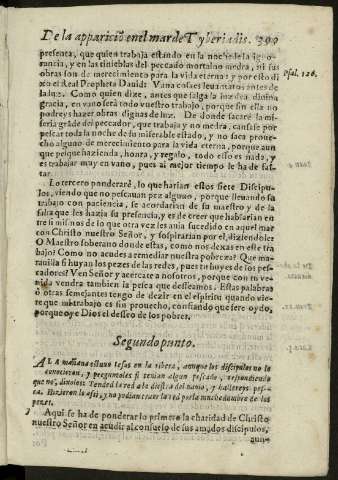 De la apparició en el mar de Tyberiadis. 300
presenta, que quien trabaja estando en la noche de la igno-
rancia, y en las tinieblas del peccado mortal no medra, ni sus
obras son de merecimiento para la vida eterna: y por esto di
xo el Real Propheta Dauid: Vana cosa es leuantaros antes de
la luz. Como quien dize, antes que salga la luz dela diuina
gracia, en vano será todo vuestro trabajo, porque sin ella no
podreys hazer obras dignas de luz. De donde sacaré la mi-
seria gräde del peccador, que trabaja y no medra, cansase por
pescar toda la noche de su miserable estado, y no saca proue-
cho alguno de merecimiento para la vida eterna, porque aun
que pesque hazienda, honra, y regalo, todo esso es nada, y
es trabajar muy en vano, pues al mejor tiempo le ha de fal-
tar.
Psal. 126.
Lo tercero ponderaré, lo que harian estos siete Discipu-
los, viendo que no pescauan pez alguno, porque lleuando su
trabajo con paciencia, se acordarian de su maestro y de la
falta que les hazia su presencia, y es de creer que hablarian en
tre si mismos de lo que otra vez les auia sucedido en aquel mar
con Christo nuestro Señor, y sospirarian por el, diziendole:
O Maestro soberano donde estas, como nos dexas en este tra
bajo? Como no acudes a remediar nuestra pobreza? Que ma-
rauilla si huyan los pezes de las redes, pues tu huyes de los pes-
cadores? Ven Señor y acercate a nosotros, porque con tu ve-
nida vendra tambien la pesca que desseamos. Estas palabras
ó otras semejantes tengo de dezir en el espiritu quando vie-
re que mi trabajo es sin prouecho, confiando que sere oydo,
porque oye Dios el desseo de los pobres.
Segundo punto.
A LA mañana estuuo Iesus en la ribera, aunque los discipulos no lo
conocieran, y preguntoles si tenian algun pescado, respondiendo
que no, dixoles: Tended la red a la diestra del nauio, y hallareys pes-
ca. Hizieron lo assi, y no podian traer la red por la muchedumbre de los
pezes.
Aqui se ha de ponderar lo primero la charidad de Christo
nuestro Señor en acudir al consuelo de sus amados discipulos,
aun-